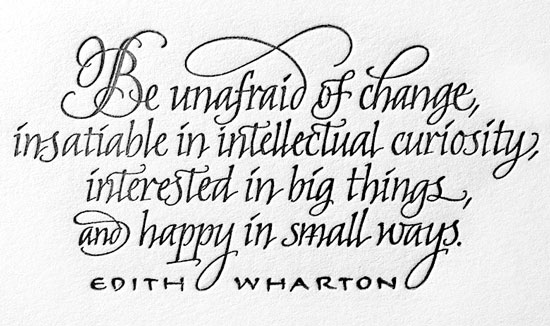 Be unafraid of change,
insatiable in intellectual curiosity,
interested in big things,
and happy in small ways.
EDITH WHARTON